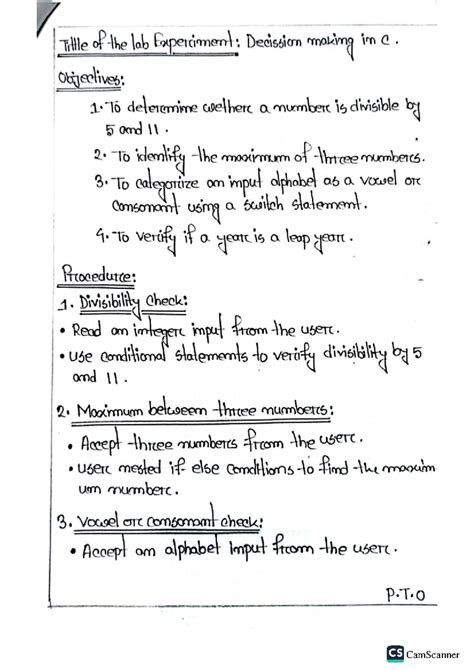 Tittle of the lab Experiment: Decission making in c.
Objectives:
1. To determine wethere a number is divisible by
5 and 11.
2. To identify the maximum of three numbers.
3. To categorize an input alphabet as a vowel or
consonant using a switch statement.
4. To verify if a year is a leap year.
Procedure:
1. Divisibility Check:
• Read an integer input from the user.
• Use conditional statements to verify divisibility by 5
and 11.
2. Maximum between three numbers:
• Accept three numbers from the user.
• user nested if else conditions to find the maxim
um number.
3. Vowel or consonant check:
• Accept an alphabet input from the user.
P.T.O
CS CamScanner